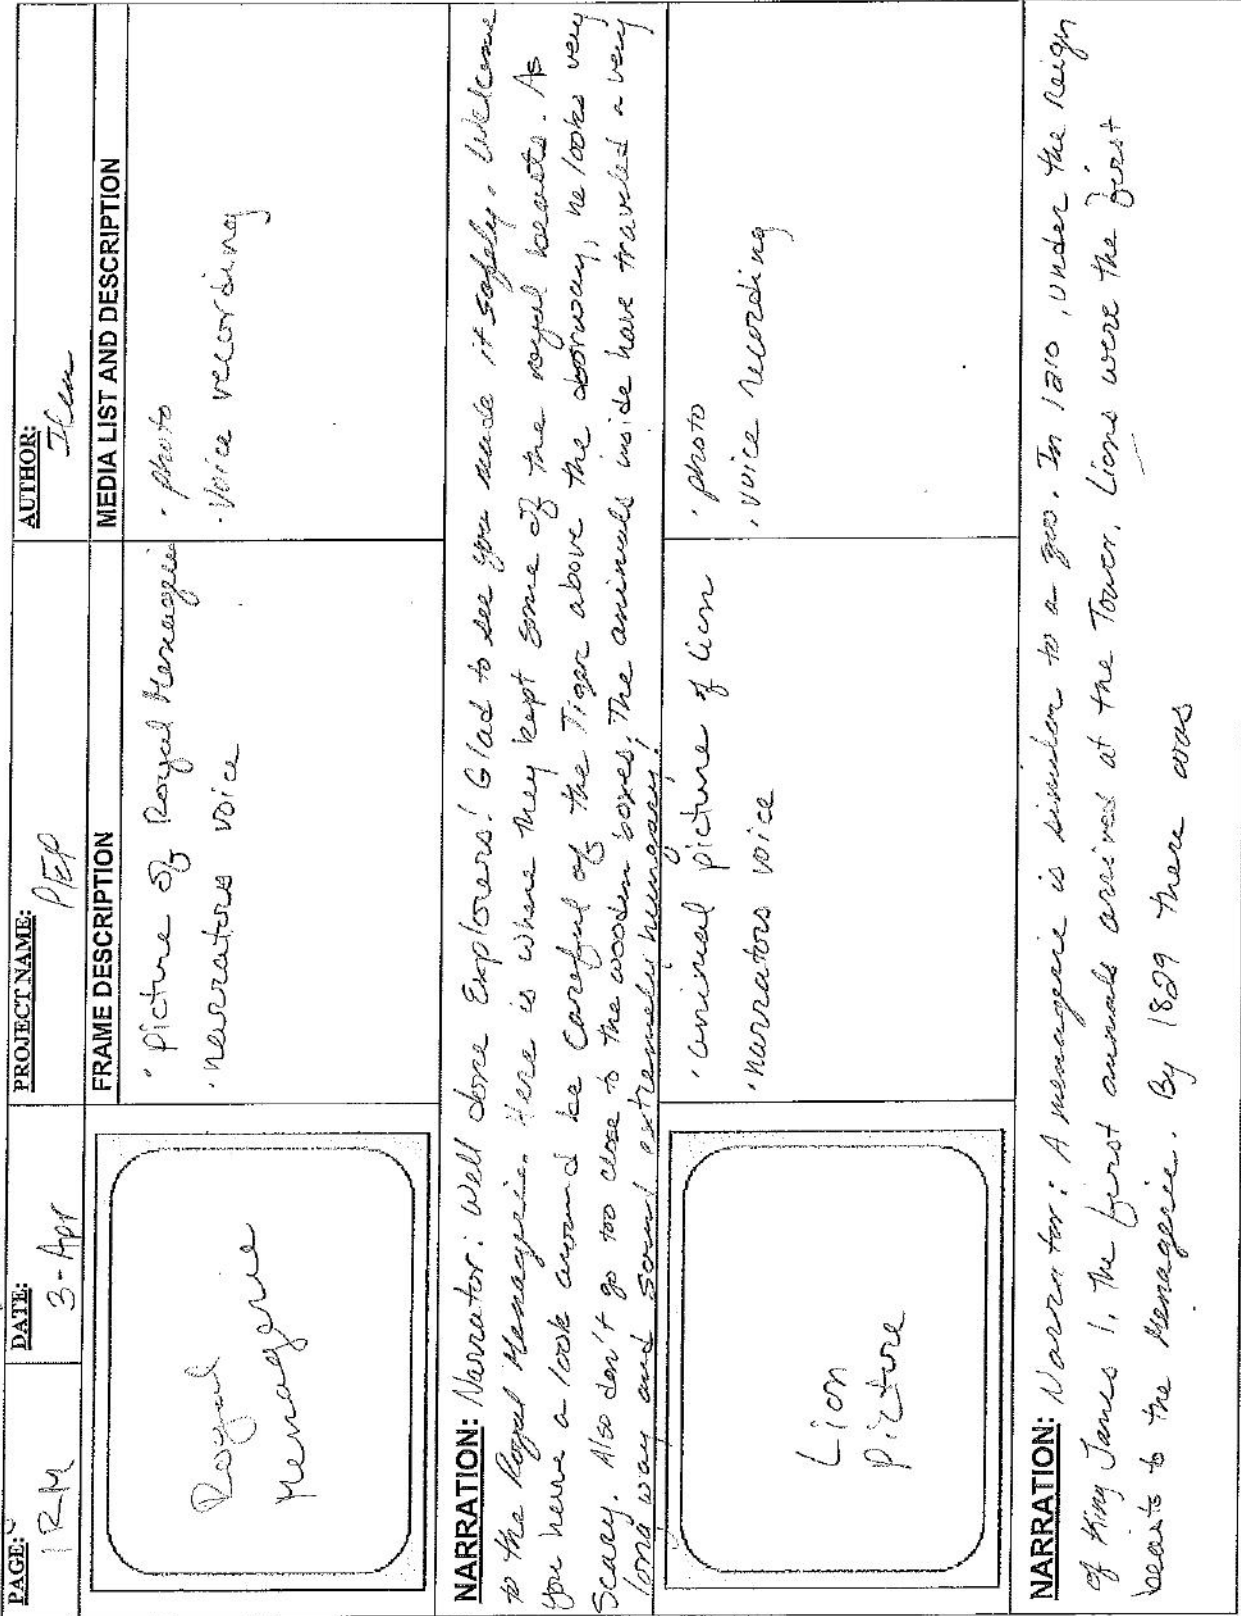 PAGE: DATE: PROJECT NAME: AUTHOR:
1RM 3-Apr PEP
FRAME DESCRIPTION MEDIA LIST AND DESCRIPTION
Royal
Menagerie
· Picture of Royal Menagerie
· narrators voice
· photo
· Voice recording
NARRATION: Narrator: Well done Explorers! Glad to see you made it safely. Welcome
to the Royal Menagerie. Here is where they kept some of the royal beasts. As
you have a look around be careful of the Tiger above the doorway, he looks very
Scary. Also don't go too close to the wooden boxes. The animals inside have traveled a very
long way and sound extremely hungry!
Lion
Picture
· animal picture of Lion
· narrators voice
· photo
· voice recording
NARRATION: Narrator: A menagerie is similar to a zoo. In 1210, under the Reign
of King James 1, the first animals arrived at the Tower. Lions were the first
beasts to the Menagerie. By 1829 there was